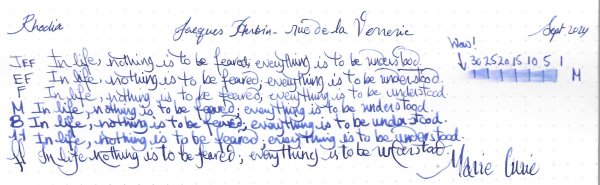 Rhodia Jacques Herbin - rue de la Verrerie Sept 2024
Wow!
30 25 20 15 10 5 1
M
IEF In life, nothing is to be feared; everything is to be understood.
EF In life, nothing is to be feared; everything is to be understood.
F In life, nothing is to be feared; everything is to be understood.
M In life, nothing is to be feared; everything is to be understood.
B In life, nothing is to be feared; everything is to be understood.
1.1 In life, nothing is to be feared; everything is to be understood.
In life nothing is to be feared; everything is to be understood
Marie Curie